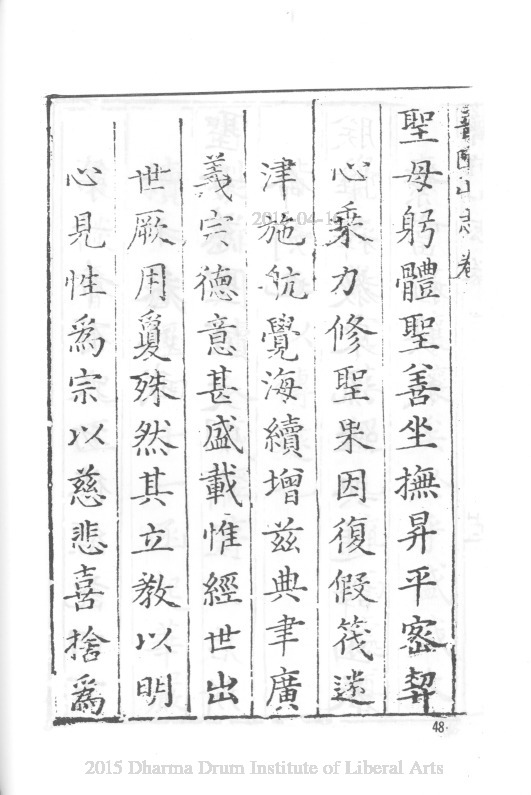 普陀山志 卷
聖母躬體聖善坐撫昇平密契
心乘力修聖果因復假筏迷
津施航覺海續增茲典聿廣
義德意甚盛載惟經世出
世厥用敻殊然其立教以明
心見性爲宗以慈悲喜捨爲
48
2015 Dharma Drum Institute of Liberal Arts